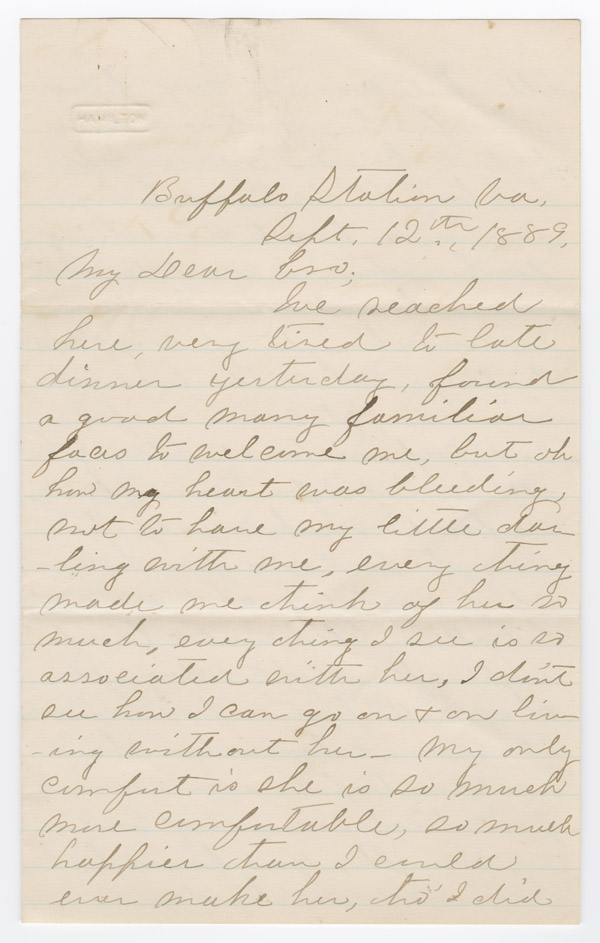 HAMILTON
Buffalo Station Va.
Sept. 12th., 1889.
My Dear Bro;
We reached
here, very tired to late
dinner yesterday, found
a good many familiar
faces to welcome me, but oh
how my heart was bleeding,
not to have my little dar
-ling with me, every thing
made me think of her so
much, every thing I see is so
associated with her, I don't
see how I can go on & on liv
-ing without her - My only
comfort is she is so much
more comfortable, so much
happier than I could
ever make her, tho' I did